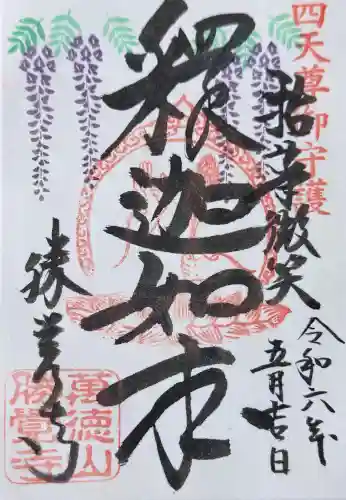 四天尊御守護
拈華微笑
釋迦如来
令和六年
五月吉日
勝覚寺
萬徳山
勝覺寺